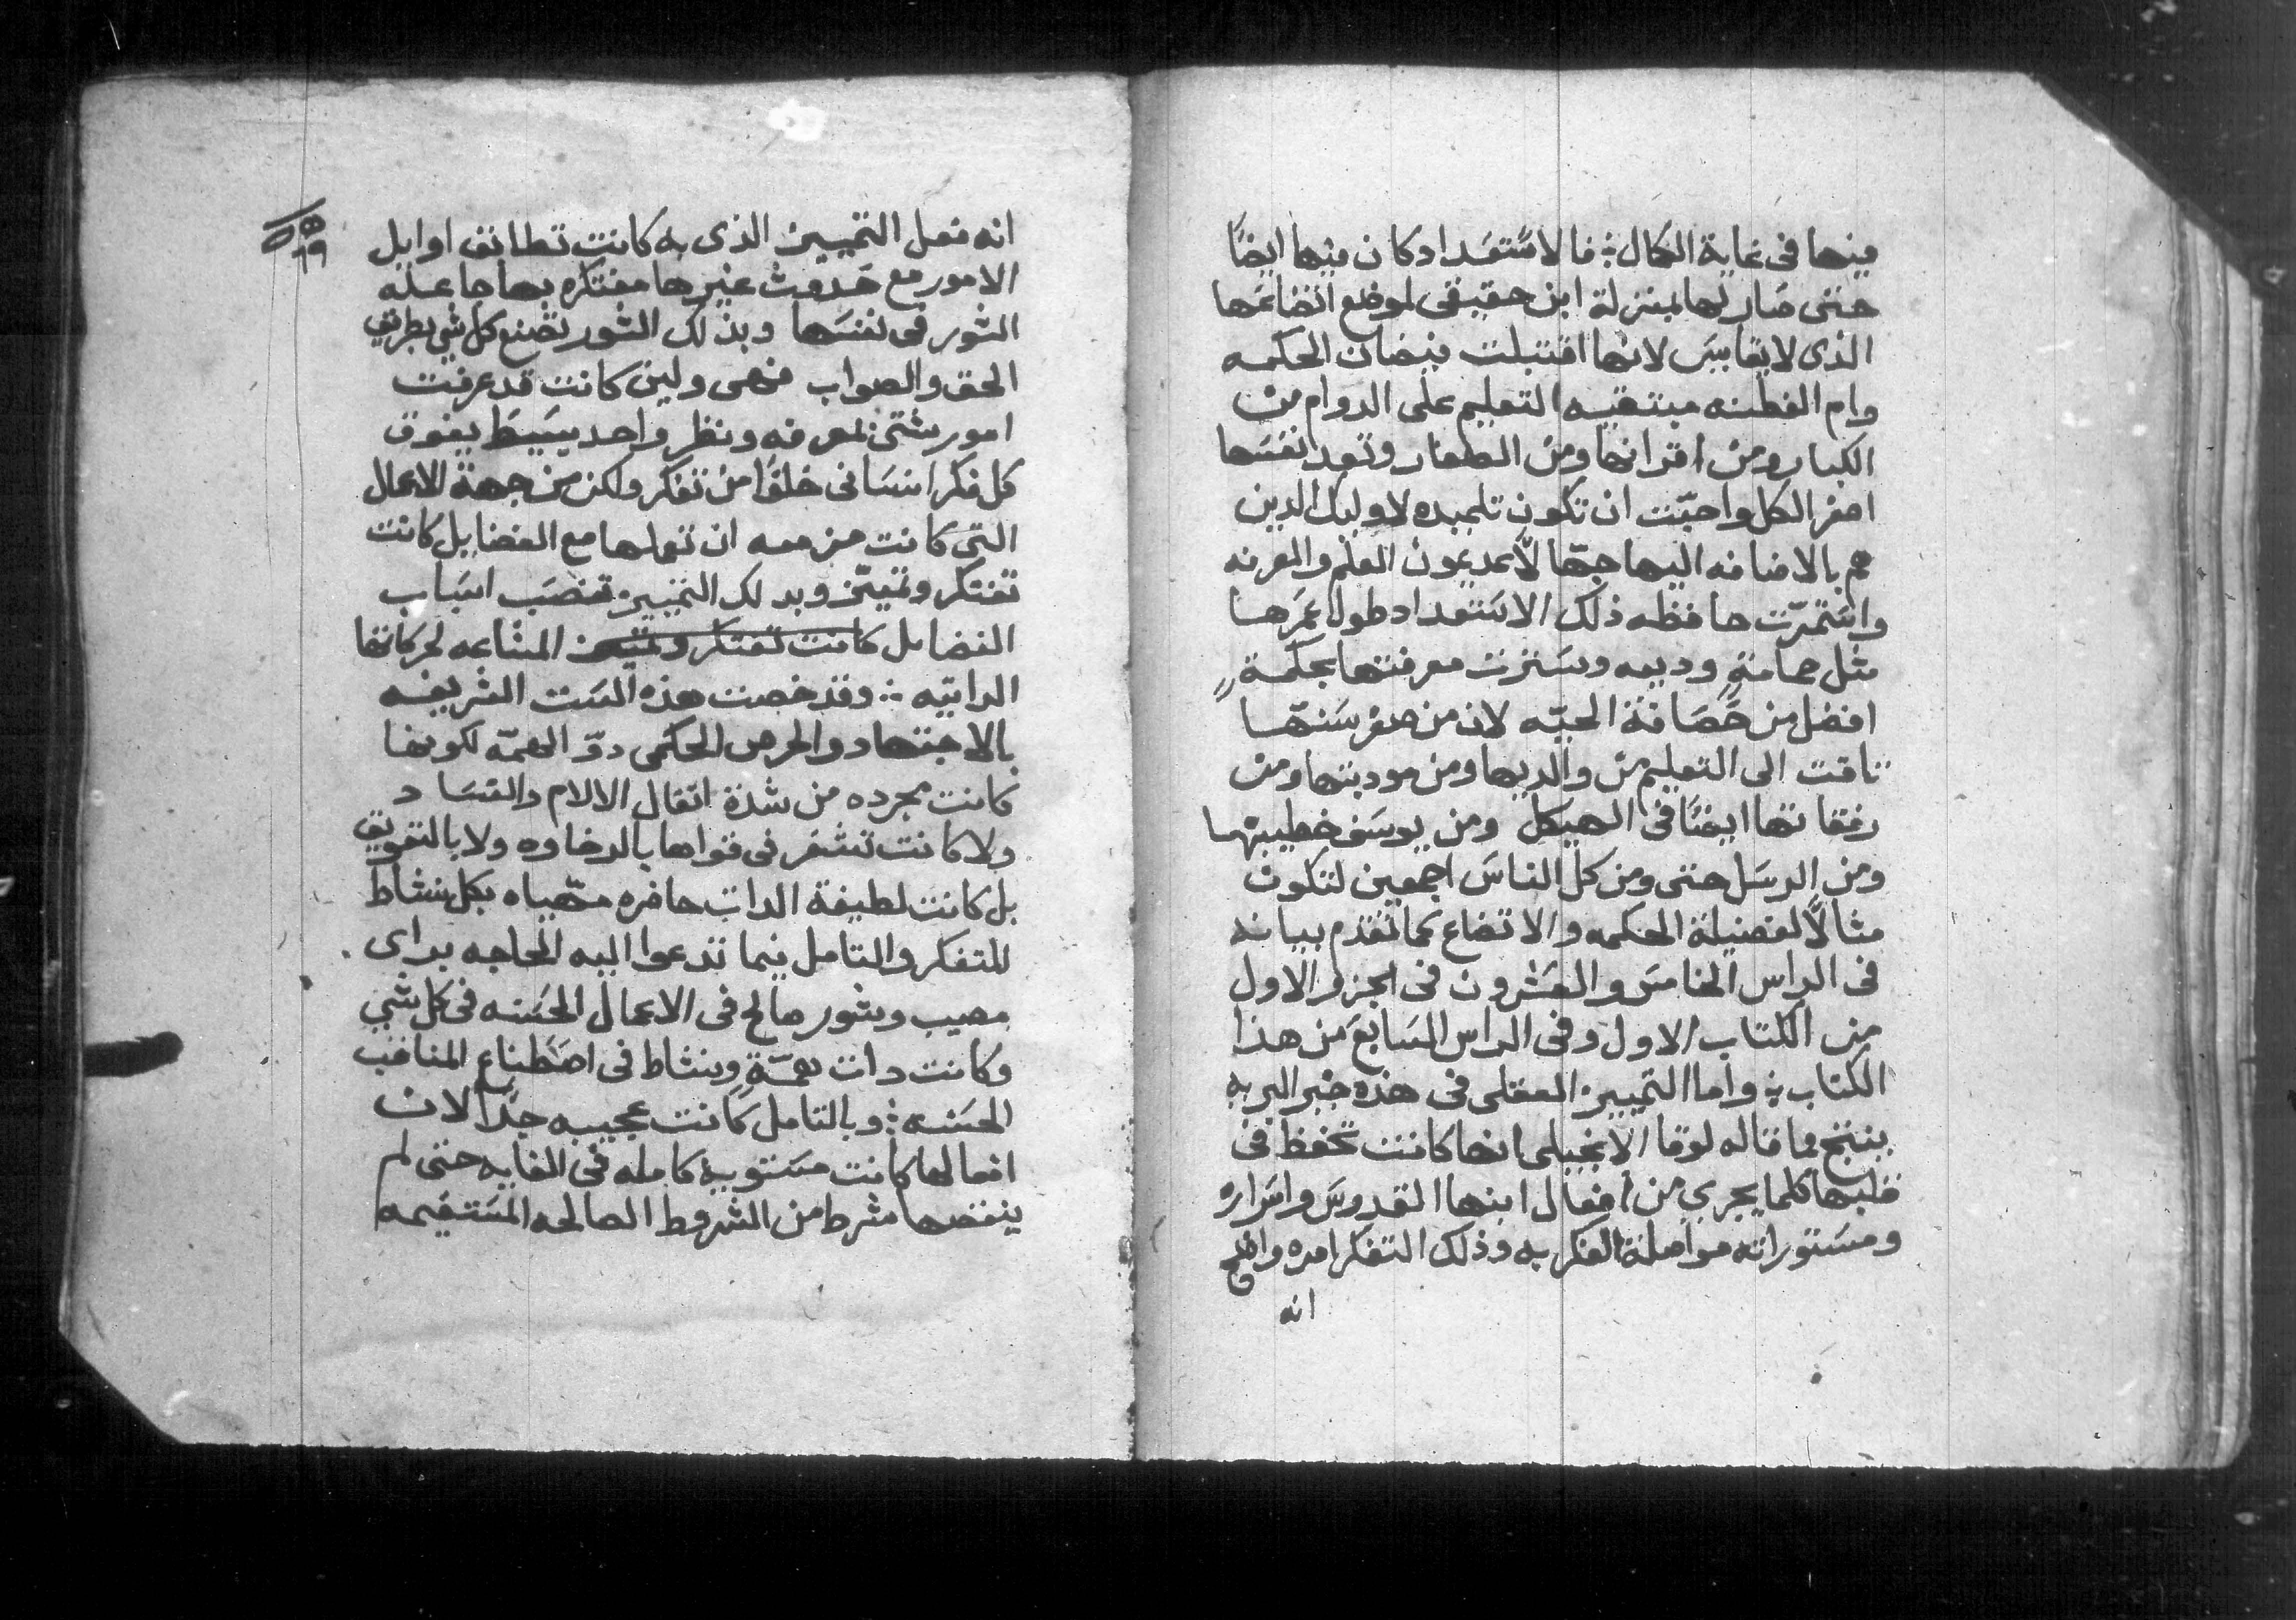 فيها فى غاية الكمال ܀ فالاستعداد كان فيها ايضًا
حتى صار لها بمنزلة ابن حقيقى لموضع اتضاعها
الذى لا يقايس لانها اقتبلت فيضان الحكمه
وام الفطنه مبتغيه التعليم على الدوام من
الكبار ومن اقرانها ومن الصغار وتعد نفسها
اصغر الكل واحبّت ان تكون تلميده لاوليك الدين
هم بالاضافه اليها جهّالاً عديمون العلم والمعرفه
واستمرّت حافظه ذلك الاستعداد طول عمرها
مثل حمامةٍ وديعه وسترت معرفتها بحكمةٍ
افضل من حَصَافة الحيّه لان من صغر سنّها
تاقت الى التعليم من والديها ومن مودبتها ومن
رفقاتها ايضًا فى الهيكل ومن يوسف خطيبها
ومن الرسل حتى ومن كل الناس اجمعين لتكون
مثالاً لفضيلة الحكمه والاتضاع كما تقدم بيانه
فى الراس الخامس والعشرون فى الجزو الاول
من الكتاب الاول وفى الراس السابع من هذا
الكتاب ܀ واما التمييز العقلى فى هذه خير البريه
ينتج مما قاله لوقا الانجيلى انها كانت تحفظ فى
قلبها كلما يجرى من افعال ابنها القدوس واسراره
ومستوراته مواصلة الفكر به وذلك التفكر امره واضح
انه
٦٩
انه فعل التمييز الذى به كانت تطابق اوايل
الامور مع حدوث غيرها مفتكره بها جاعله
الشور فى نفسها وبذلك الشور تصنع كل شى بطريق
الحق والصواب فهى ولين كانت قد عرفت
امور شتى بمعرفه ونظر واحد بسيط يفوق
كل فكر انسانى خلوًا من تفكر ولكن من جهة الاعمال
التى كانت مزمعه ان تعملها مع الفضايل كانت
تفتكر وتميّز وبدلك التمييز تنصب اسباب
الفضايل كانت تفتكر وتميز المشاعه لحركاتها
الداتيه ܀ وقد خصت هذه الست الشريفه
بالاجتهاد والحرص الحكمى دوّ الهمّه لكونها
كانت مجرده من شدة اثقال الالام والفساد
ولا كانت تشعر فى قواها بالرخاوه ولا بالتعويق
بل كانت لطيفة الدات حاضره مهّياه بكل نشاط
للتفكر والتامل فيما تدعوا اليه الحاجه براى
مصيب وشور صالح فى الاعمال الحسنه فى كل شى
وكانت دات همّةٍ ونشاط فى اصطناع المناقب
الحسنه ܀ وبالتامل كانت عجيبه جدًا لان
افعالها كانت مستويه كامله فى الغايه حتى لم
ينقصها شرط من الشروط الصالحه المستقيمه